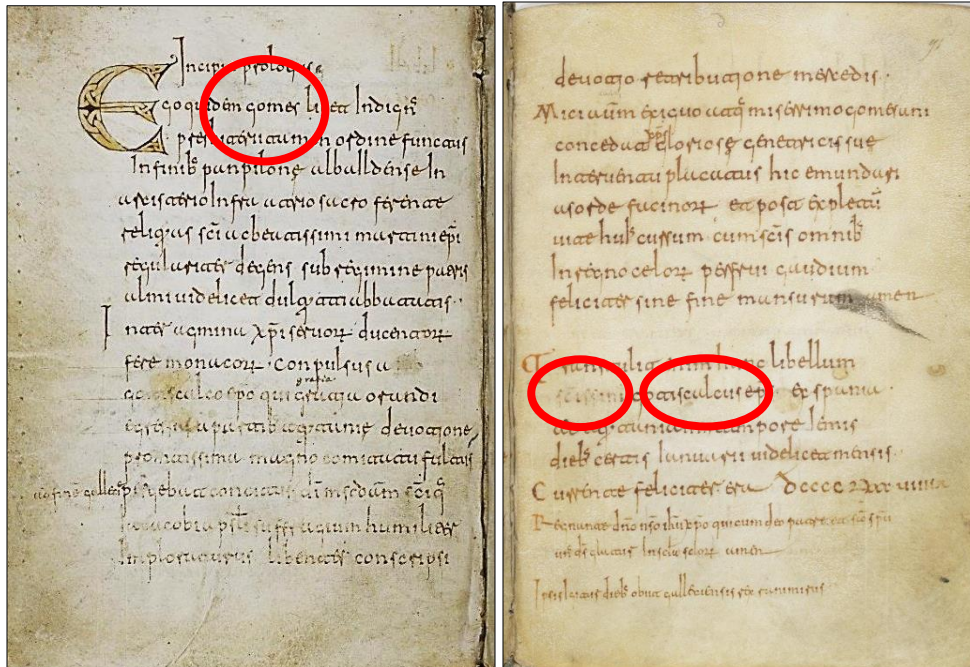 Incipit prologus
Ego quidem gomes licet Indignꝰ
presbiterii tamen ordine functus
Infinibꝰ panpilone albaldense In
arcisterio Infra atrio sacro ferente
reliquias sc̄i ac beatissimi martini ep̄i
regulariter degens sub regimine patris
almi uidelicet dulquitti abbatis
Inter agmina xp̄i seruorꝝ ducentorꝝ
fere monacorꝝ conpulsus a
gratia
gotiscalco ep̄o qui orandi
a partibꝰ aquitanie deuotione
promtissima magno comitatu fultus
ad fine gallecie pergebat concitus
iacobi suffragium humiliter
Imploraturus libenter conscripsi
deuotio retributione mercedis
Mici autem exiguo atq̄ miserrimo gomesani
concedat xp̄s gloriose genetricis sue
Interuentu placatus hic emundari
a sorde facinorꝝ et post expletū
uite huiꝰ cursum cum sc̄is omnibꝰ
In regno celorꝝ perfrui gaudium
feliciter sine fine mansurum amen
hunc libellum
sc̄issimus gotiscalcus ep̄s ex spania
ad aquitaniam tempore iemis
diebꝰ certis Ianuarii uidelicet mensis
Currente feliciter era dcccc
Regnante dn̄o nso ihū xp̄o qui cum deo patre et sc̄o spū
unꝰ ds̄ gloriatur In sc̄la sclorꝝ amen
Ipsis igitur diebꝰ obiit galleciensis rex ranimirus